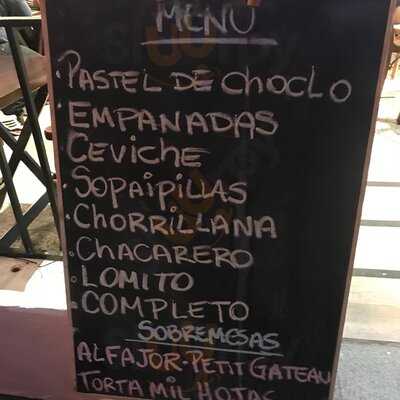 MENU
· PASTEL DE CHOCLO
· EMPANADAS
· CEVICHE
· SOPAIPILLAS
· CHORRILLANA
· CHACARERO
· LOMITO
· COMPLETO
SOBREMESAS
ALFAJOR · PETIT GATEAU
TORTA MIL HOJAS